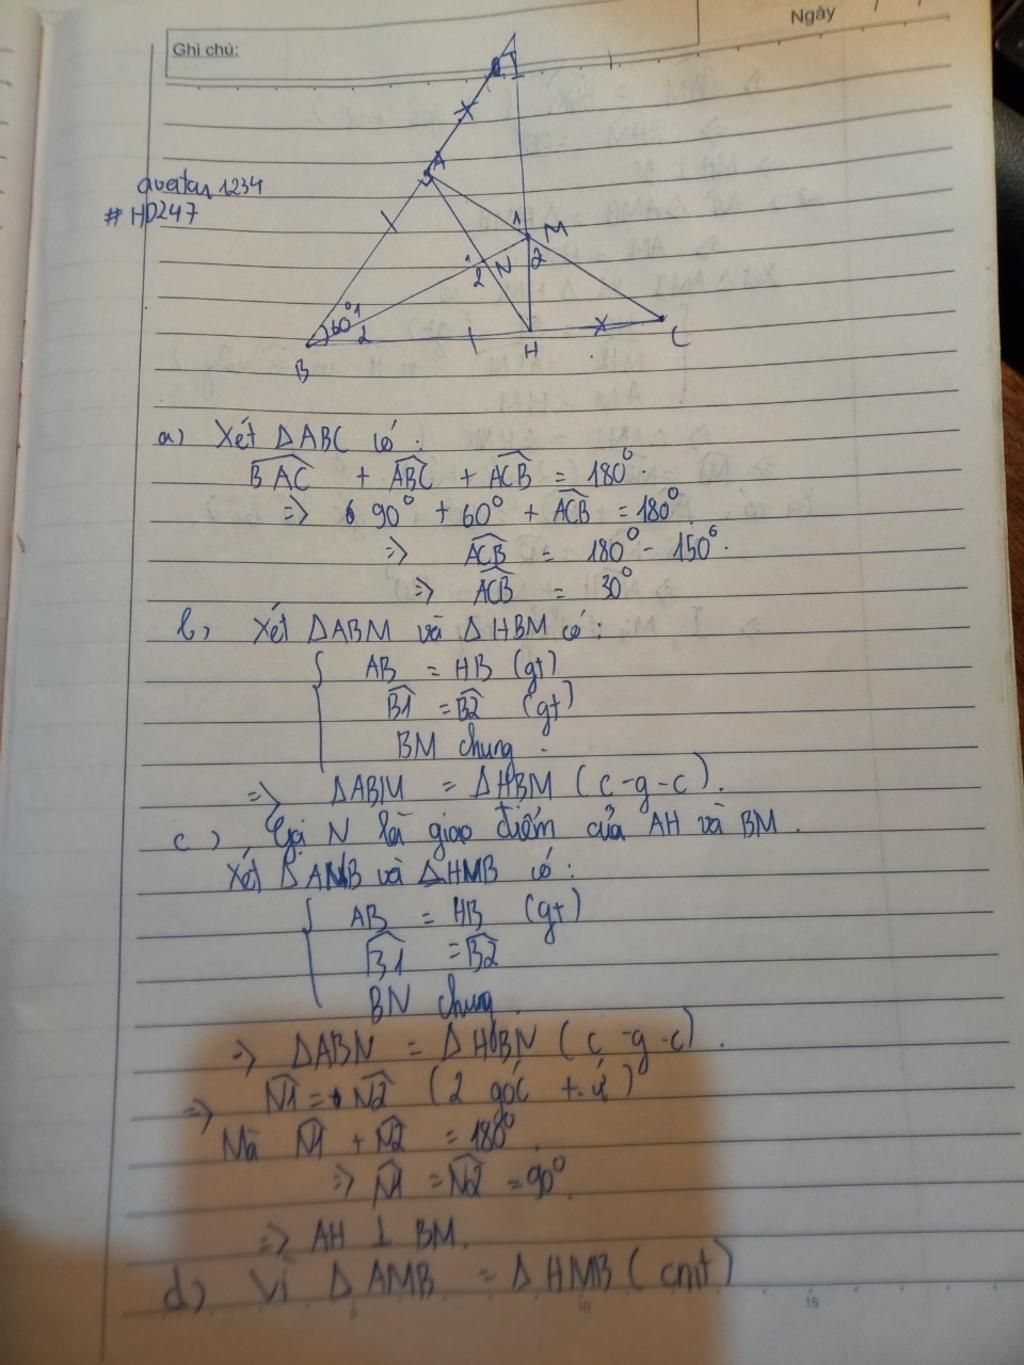 Ngày
Ghi chú:
A
avatar 1234
# HD247
1 M
2 N 2
60° 1
2
B H C
a) Xét ΔABC có:
BAC + ABC + ACB = 180°.
=> 90° + 60° + ACB = 180°
=> ACB = 180° - 150°.
=> ACB = 30°
b, Xét ΔABM và ΔHBM có:
AB = HB (gt)
B1 = B2 (gt)
BM chung.
=> ΔABM = ΔHBM (c-g-c).
c), Gọi N là giao điểm của AH và BM.
Xét ΔANB và ΔHMB có:
AB = HB (gt)
B1 = B2
BN chung.
=> ΔABN = ΔHBN (c-g-c).
=> N1 = N2 (2 góc t.ứ)
Mà N1 + N2 = 180°.
=> N1 = N2 = 90°.
=> AH ⊥ BM.
d) Vì ΔAMB = ΔHMB (cmt)
5 10 15